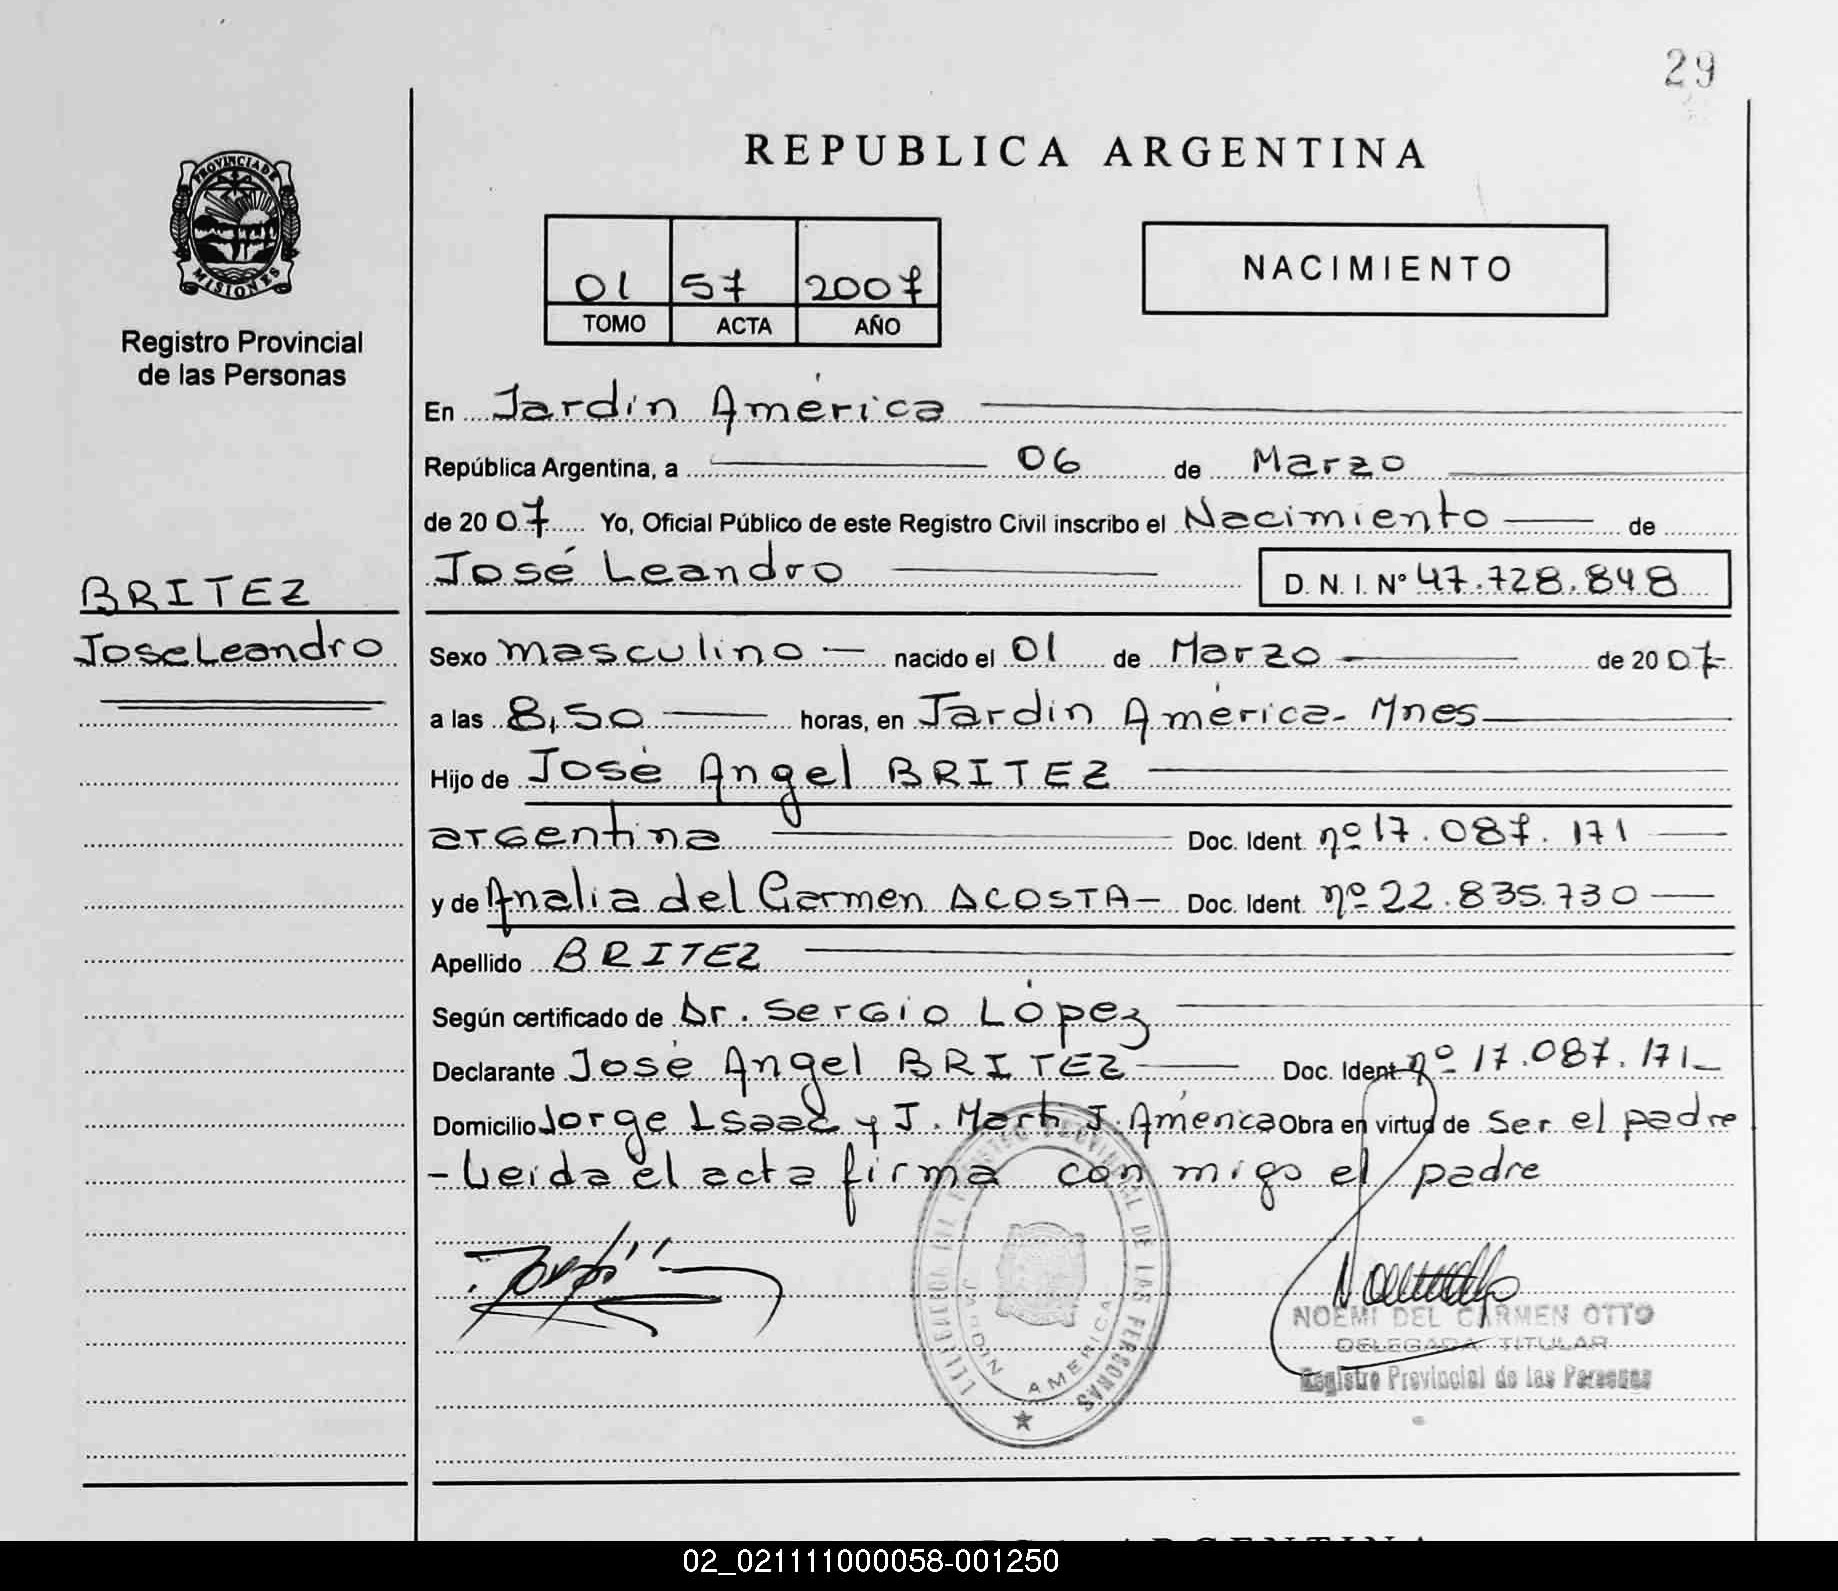 29
REPUBLICA ARGENTINA
PROVINCIA DE
MISIONES
Registro Provincial
de las Personas
01 57 2007
TOMO ACTA AÑO
NACIMIENTO
En Jardín América
República Argentina, a 06 de Marzo
de 2007 Yo, Oficial Público de este Registro Civil inscribo el Nacimiento de
José Leandro D. N. I. Nº 47.728.848
BRITEZ
Jose Leandro
Sexo masculino nacido el 01 de Marzo de 2007
a las 8,50 horas, en Jardín América- Mnes
Hijo de José Angel BRITEZ
argentina Doc. Ident. nº 17.087.171
y de Analia del Carmen ACOSTA- Doc. Ident. nº 22.835.730
Apellido BRITEZ
Según certificado de Dr. Sergio López
Declarante José Angel BRITEZ Doc. Ident. nº 17.087.171
Domicilio Jorge Isaac y J. Marti J. América Obra en virtud de ser el padre
-Leída el acta firma con migo el padre
REGISTRO PROVINCIAL DE LAS PERSONAS
JARDIN AMERICA
NOEMI DEL CARMEN OTTO
DELEGADA TITULAR
Registro Provincial de las Personas
02_021111000058-001250